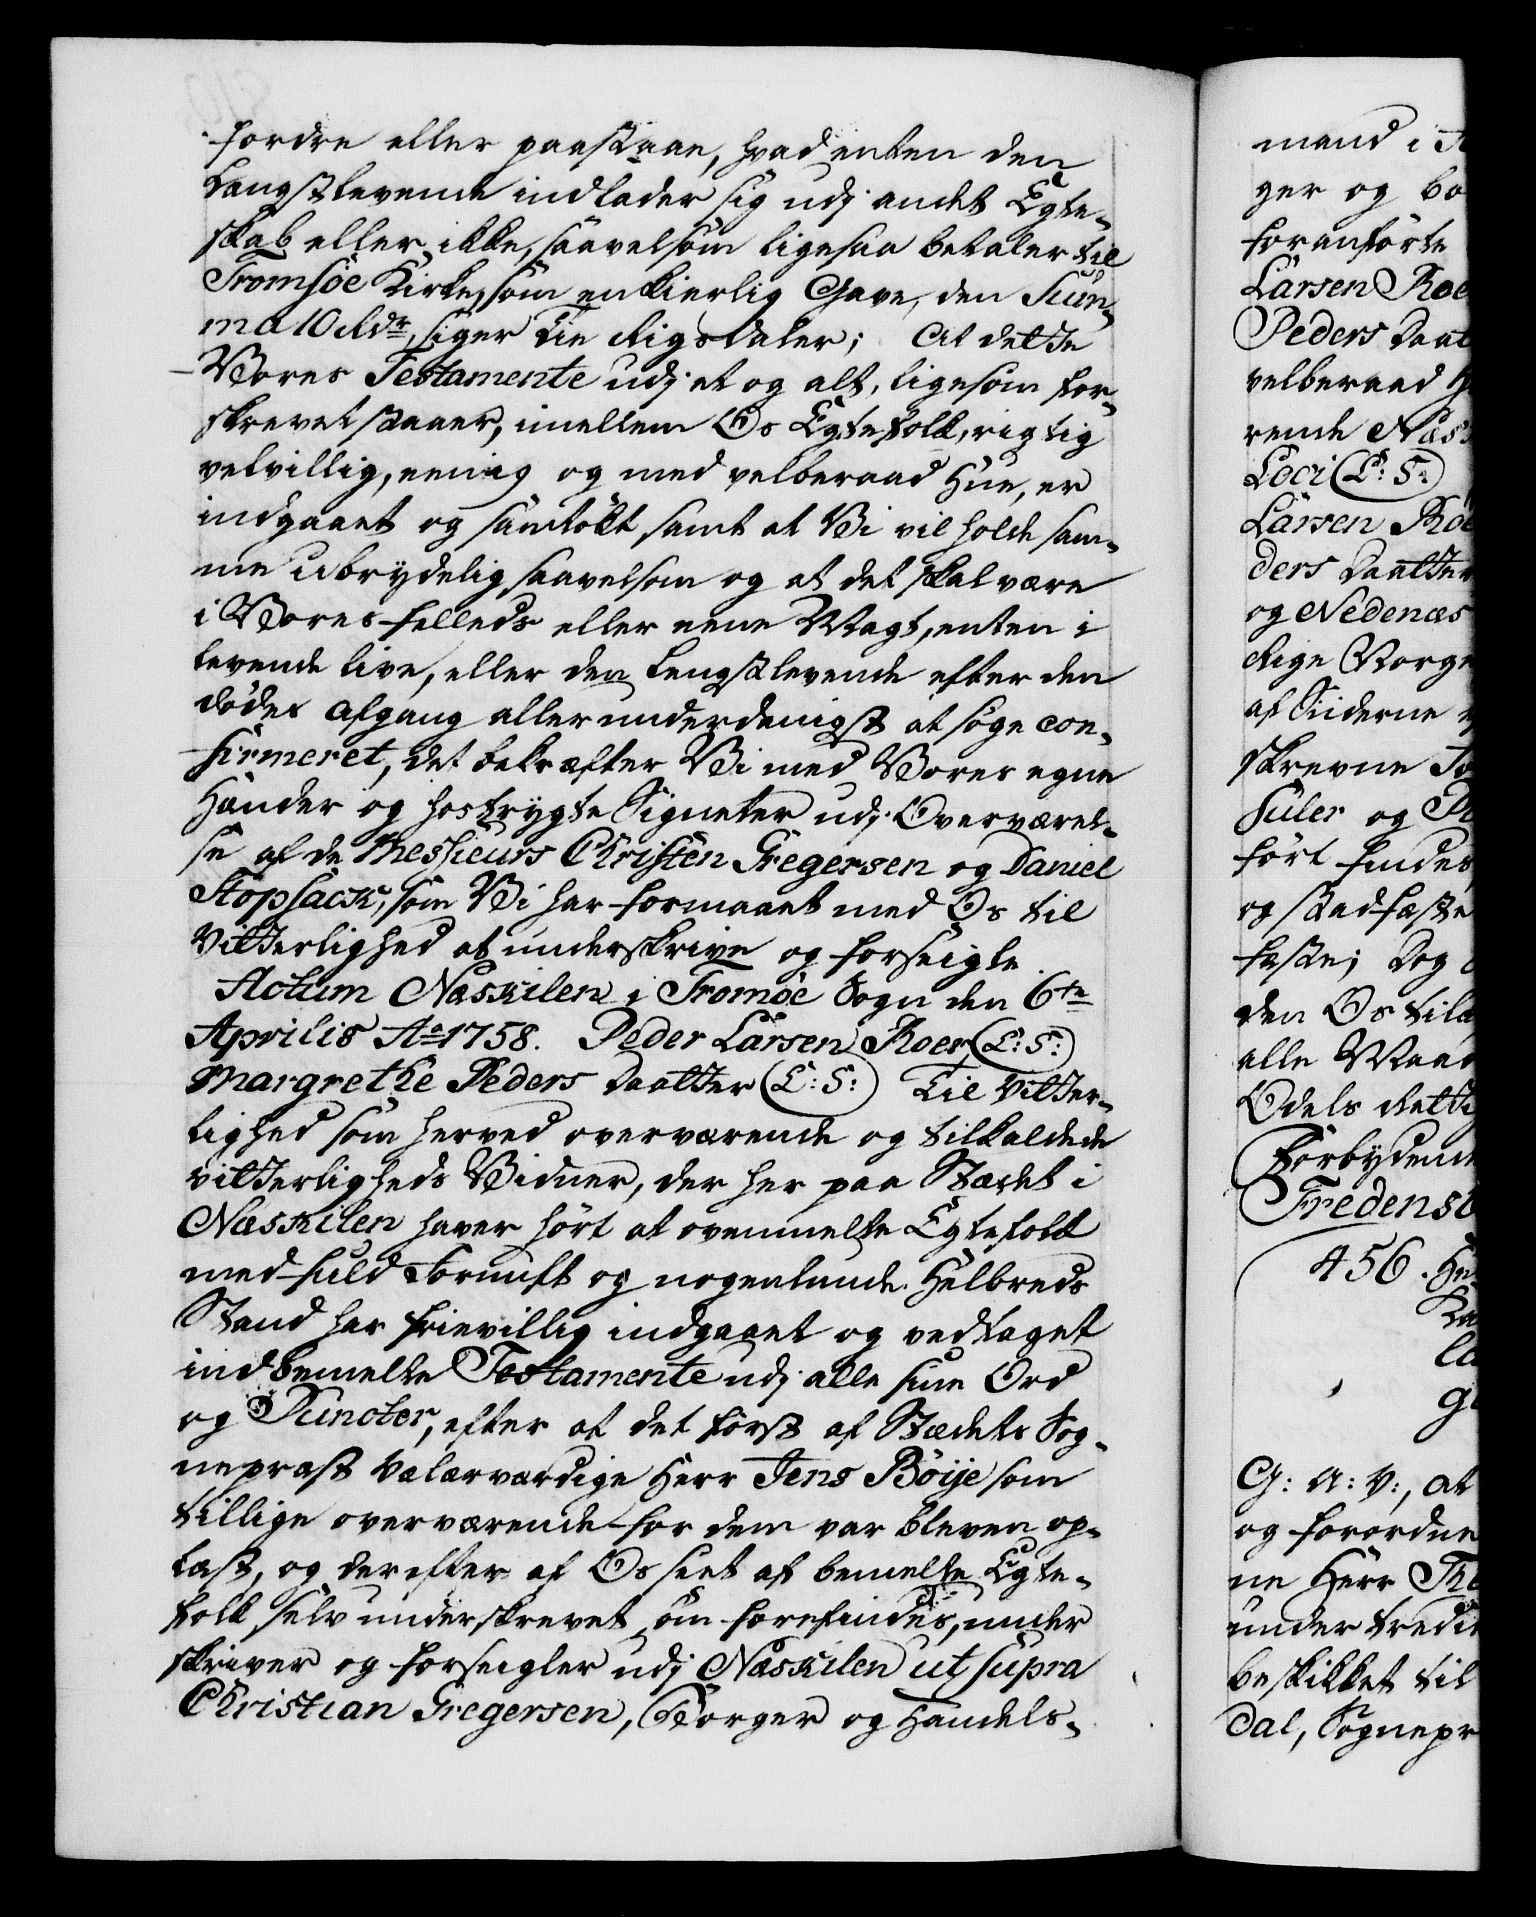 fordre eller paastaae, hvad enten den
Længstlevende indlader sig udj andet Egte-
skab eller ikke, saavelsom ligesaa betaler til
Tromsöe Kirke, som en kierlig Gave, den Sum-
ma 10 Rdr., siger Tie Rigsdaler; At dette
Vores Testamente udj et og alt, ligesom for-
skrevet staaer, imellem Os Egtefolk, rigtig
velvillig, eenig og med velberaad Hue, er
indgaaet og samtökt, samt at Vi vil holde sam-
me ubrydelig, saavelsom og at det skal være
i Vores fælleds eller eene Magt, enten i
levende live, eller den Lengstlevende efter den
dödes Afgang allerunderdanigst at söge con-
firmeret, det bekræfter Vi med Vores egne
Hænder og hostrygte Signeter udj Overværel-
se af de Messieurs Christen Gregersen og Daniel
Stopsack, som Vi har formaaet med Os til
Vitterlighed at underskrive og forseigle
Actum Næskilen i Tromöe Sogn den 6te
Aprilis Ao 1758. Peder Larsen Roer (L: S:)
Margrethe Peders Daatter (L: S:) Til Vitter-
lighed som herved overværende og tilkaldede
vitterligheds Vidner, der her paa Stædet i
Næskilen haver hört at ovenmelte Egtefolk
med fuld Fornuft og nogenlunde Helbreds
Stand har frievillig indgaaet og vedtaget
indbemelte Testamente udj alle sine Ord
og Puncter, efter at det först af Stædets Sog-
neprast Velærværdige Herr Jens Böije som
tillige overværende for dem var bleven op-
læst, og derefter af Os seet af bemelte Egte-
folk selv underskrevet, om forefindes, under
skriver og forseigler udj Næskilen ut supra
Christian Gregersen, Borger og Handels-
mand i
ger og bo
foranförte
Larsen Roe
Peders Daat
velberaad H
rende Næs
Loci (L: S:)
Larsen Roe
ders Daatter
og Nedenæs
Rige Norge
af Siiderne
skrevne
suler og P
fört findes,
og stadfæste
fæste; Dog
den Os till
alle Maa
Odels Retti
Forbydende
Fredensb
456. H

la

G: A: V:, At
og forordne
ne Herr Th
under tredi
beskikket til
dal, Sognepr